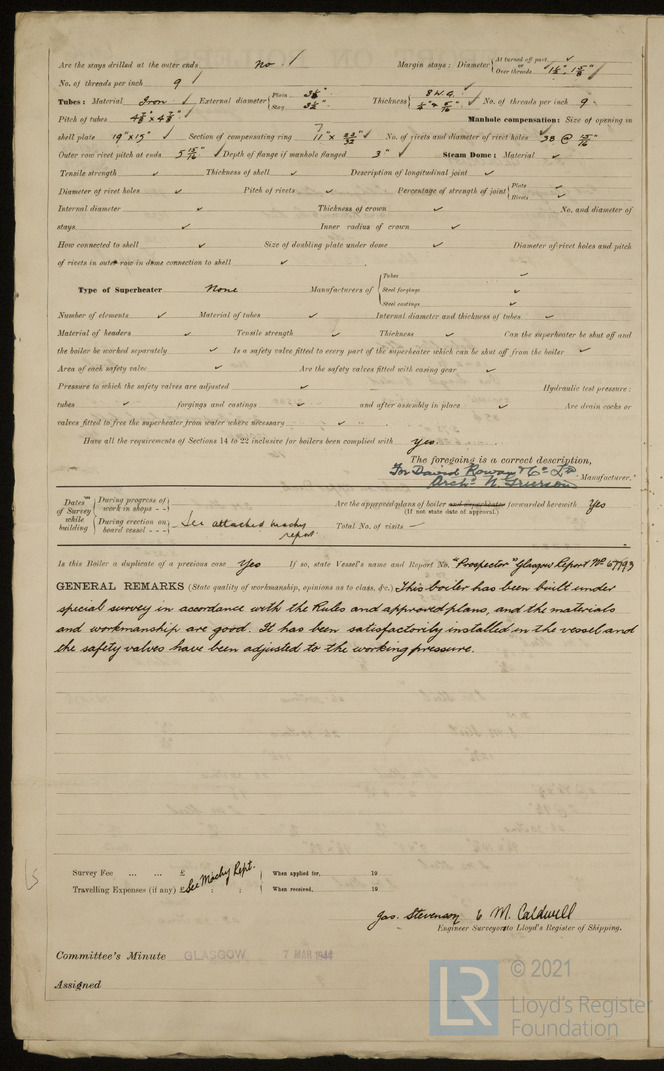 Are the stays drilled at the outer ends No. Margin stays: Diameter { At turned off part, or Over threads 1½", 1⅝"
No. of threads per inch 9
Tubes: Material Iron External diameter { Plain Stay Thickness { 8 W.G. No. of threads per inch 9.
Pitch of tubes Manhole compensation: Size of opening in
shell plate 19" x 15" Section of compensating ring No. of rivets and diameter of rivet holes 38 @ 15/16"
Outer row rivet pitch at ends 5 15/16". Depth of flange if manhole flanged 3" Steam Dome: Material ✓
Tensile strength ✓ Thickness of shell ✓ Description of longitudinal joint ✓
Diameter of rivet holes ✓ Pitch of rivets ✓ Percentage of strength of joint { Plate ✓ Rivets ✓
Internal diameter ✓ Thickness of crown ✓ No. and diameter of
stays ✓ Inner radius of crown ✓
How connected to shell ✓ Size of doubling plate under dome ✓ Diameter of rivet holes and pitch
of rivets in outer row in dome connection to shell ✓
Type of Superheater None Manufacturers of { Tubes ✓ Steel forgings ✓ Steel castings ✓
Number of elements ✓ Material of tubes ✓ Internal diameter and thickness of tubes ✓
Material of headers ✓ Tensile strength ✓ Thickness ✓ Can the superheater be shut off and
the boiler be worked separately ✓ Is a safety valve fitted to every part of the superheater which can be shut off from the boiler ✓
Area of each safety valve ✓ Are the safety valves fitted with easing gear ✓
Pressure to which the safety valves are adjusted ✓ Hydraulic test pressure:
tubes ✓ forgings and castings ✓ and after assembly in place ✓ Are drain cocks or
valves fitted to free the superheater from water where necessary ✓
Have all the requirements of Sections 14 to 22 inclusive for boilers been complied with yes.
The foregoing is a correct description,
For David Rowan & Co. Ld.
Archd. N. Grierson Manufacturer.
Dates of Survey while building { During progress of work in shops - - During erection on board vessel - - See attached machy report. Are the approved plans of boiler and superheater forwarded herewith Yes
(If not state date of approval.)
Total No. of visits —
Is this Boiler a duplicate of a previous case Yes If so, state Vessel's name and Report No. "Prospector" Glasgow Report No 67793
GENERAL REMARKS (State quality of workmanship, opinions as to class, &c.) This boiler has been built under
special survey in accordance with the Rules and approved plans, and the materials
and workmanship are good. It has been satisfactorily installed in the vessel and
the safety valves have been adjusted to the working pressure.
Survey Fee ... ... £ See Machy Rept. When applied for, 19
Travelling Expenses (if any) £ : : When received, 19
Jas. Stevenson & M. Caldwell
Engineer Surveyor to Lloyd's Register of Shipping.
Committee's Minute GLASGOW 7 MAR 1944
Assigned
LR © 2021
Lloyd's Register
Foundation